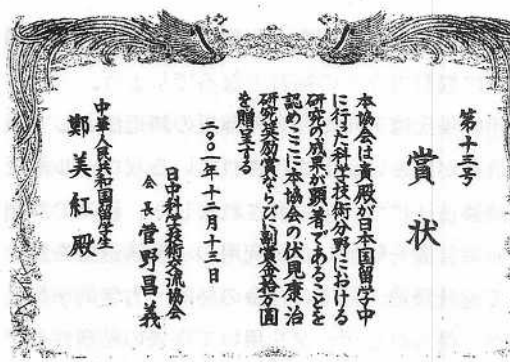 第十三号
賞状
本協会は貴殿が日本国留学中
に行った科学技術分野における
研究の成果が顕著であることを
認めここに本協会の伏見康治
研究奨励賞ならびに副賞金拾万円
を贈呈する
二〇〇一年十二月十一日
日中科学技術交流協会
会長 菅野昌義
中華人民共和国留学生
鄭美紅殿